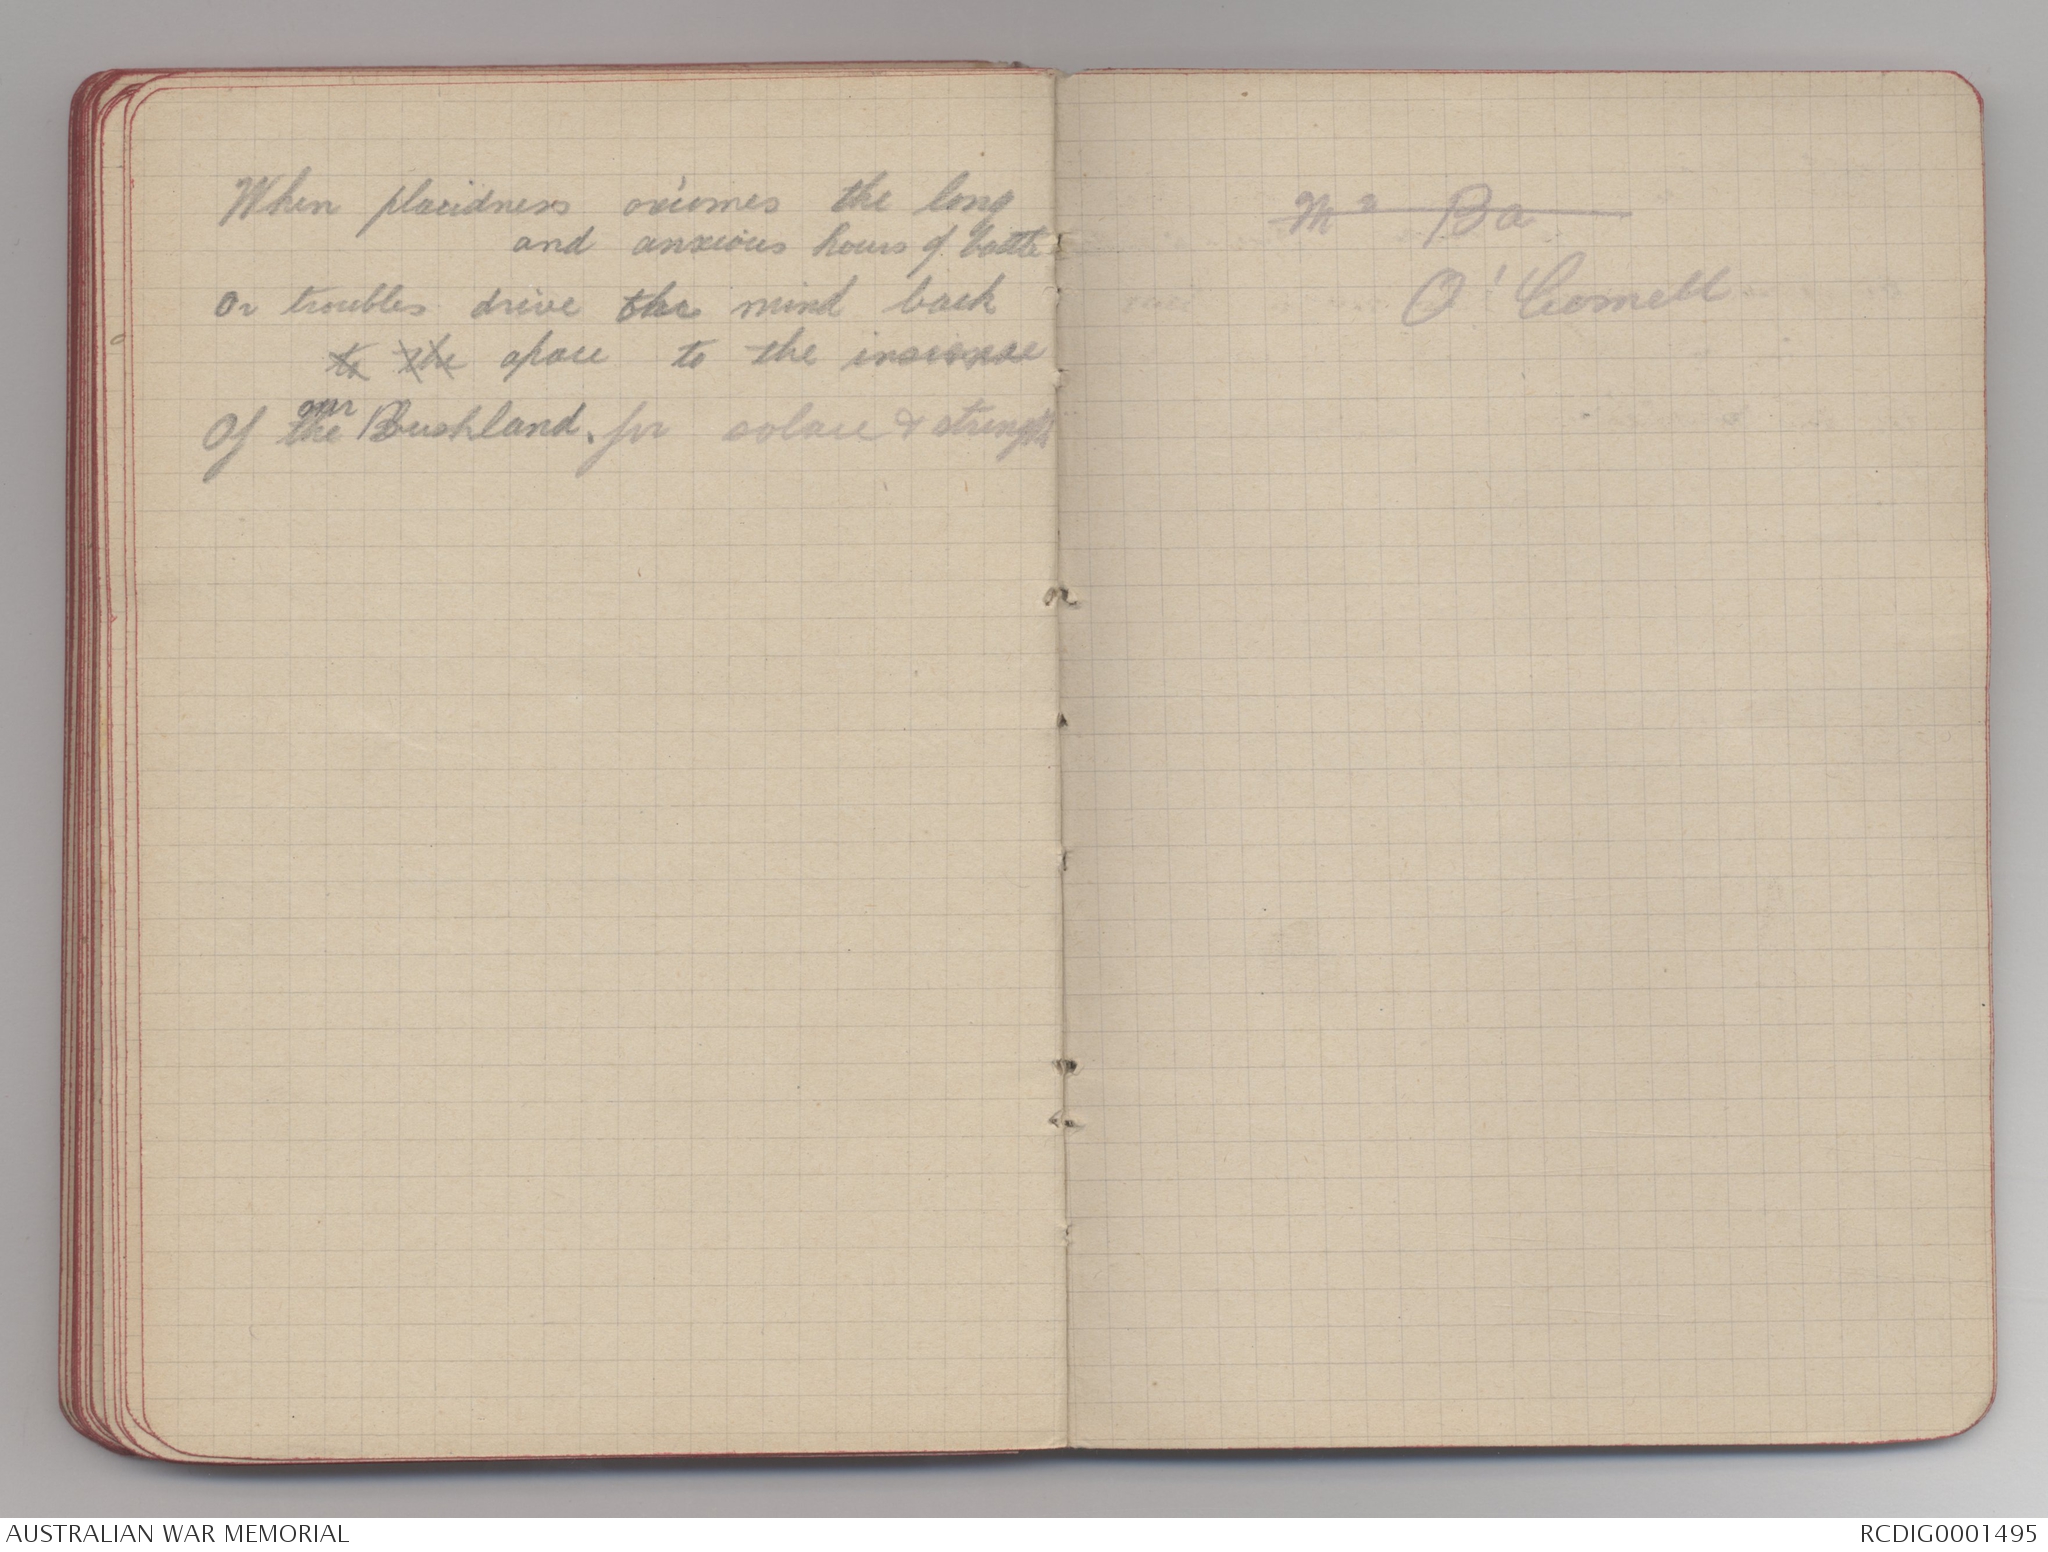 When placidness o'ercomes the long
and anxious hours of battle
Or troubles drive the mind back
to the apace to the
our
Of the Bushland. for solace & strength
Mc Ba
O'Connell
AUSTRALIAN WAR MEMORIAL
RCDIG0001495